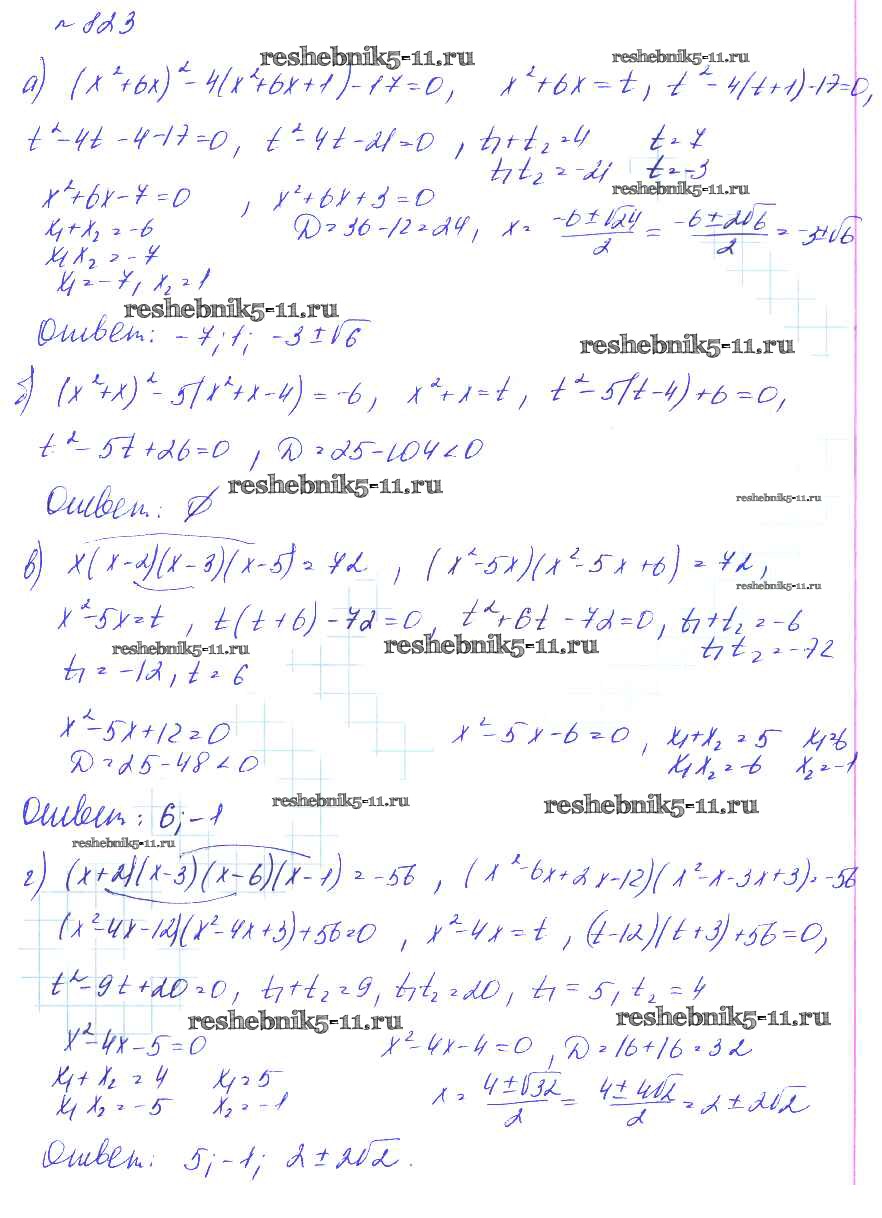 № 823
reshebnik5-11.ru reshebnik5-11.ru
а) (x²+6x)² - 4(x²+6x+1) - 17 = 0, x²+6x = t, t² - 4(t+1) - 17 = 0,
t² - 4t - 4 - 17 = 0, t² - 4t - 21 = 0, t₁+t₂ = 4 t = 7
t₁t₂ = -21 t = -3
reshebnik5-11.ru
x²+6x-7 = 0, x²+6x+3 = 0
x₁+x₂ = -6 D = 36-12 = 24, x = (-6±√24)/2 = (-6±2√6)/2 = -3±√6
x₁x₂ = -7
x₁ = -7, x₂ = 1
reshebnik5-11.ru
Ответ: -7; 1; -3±√6
reshebnik5-11.ru
б) (x²+x)² - 5(x²+x-4) = -6, x²+x = t, t² - 5(t-4) + 6 = 0,
t² - 5t + 26 = 0, D = 25-104 < 0
reshebnik5-11.ru
Ответ: ∅
reshebnik5-11.ru
в) x(x-2)(x-3)(x-5) = 72, (x²-5x)(x²-5x+6) = 72,
reshebnik5-11.ru
x²-5x = t, t(t+6) - 72 = 0, t²+6t-72 = 0, t₁+t₂ = -6
reshebnik5-11.ru reshebnik5-11.ru t₁t₂ = -72
t₁ = -12, t = 6
x²-5x+12 = 0 x²-5x-6 = 0, x₁+x₂ = 5 x₁ = 6
D = 25-48 < 0 x₁x₂ = -6 x₂ = -1
reshebnik5-11.ru reshebnik5-11.ru
Ответ: 6; -1
reshebnik5-11.ru
г) (x+2)(x-3)(x-6)(x-1) = -56, (x²-6x+2x-12)(x²-x-3x+3) = -56
(x²-4x-12)(x²-4x+3)+56 = 0, x²-4x = t, (t-12)(t+3)+56 = 0,
t²-9t+20 = 0, t₁+t₂ = 9, t₁t₂ = 20, t₁ = 5, t₂ = 4
reshebnik5-11.ru reshebnik5-11.ru
x²-4x-5 = 0 x²-4x-4 = 0, D = 16+16 = 32
x₁+x₂ = 4 x₁ = 5 x = (4±√32)/2 = (4±4√2)/2 = 2±2√2
x₁x₂ = -5 x₂ = -1
Ответ: 5; -1; 2±2√2.